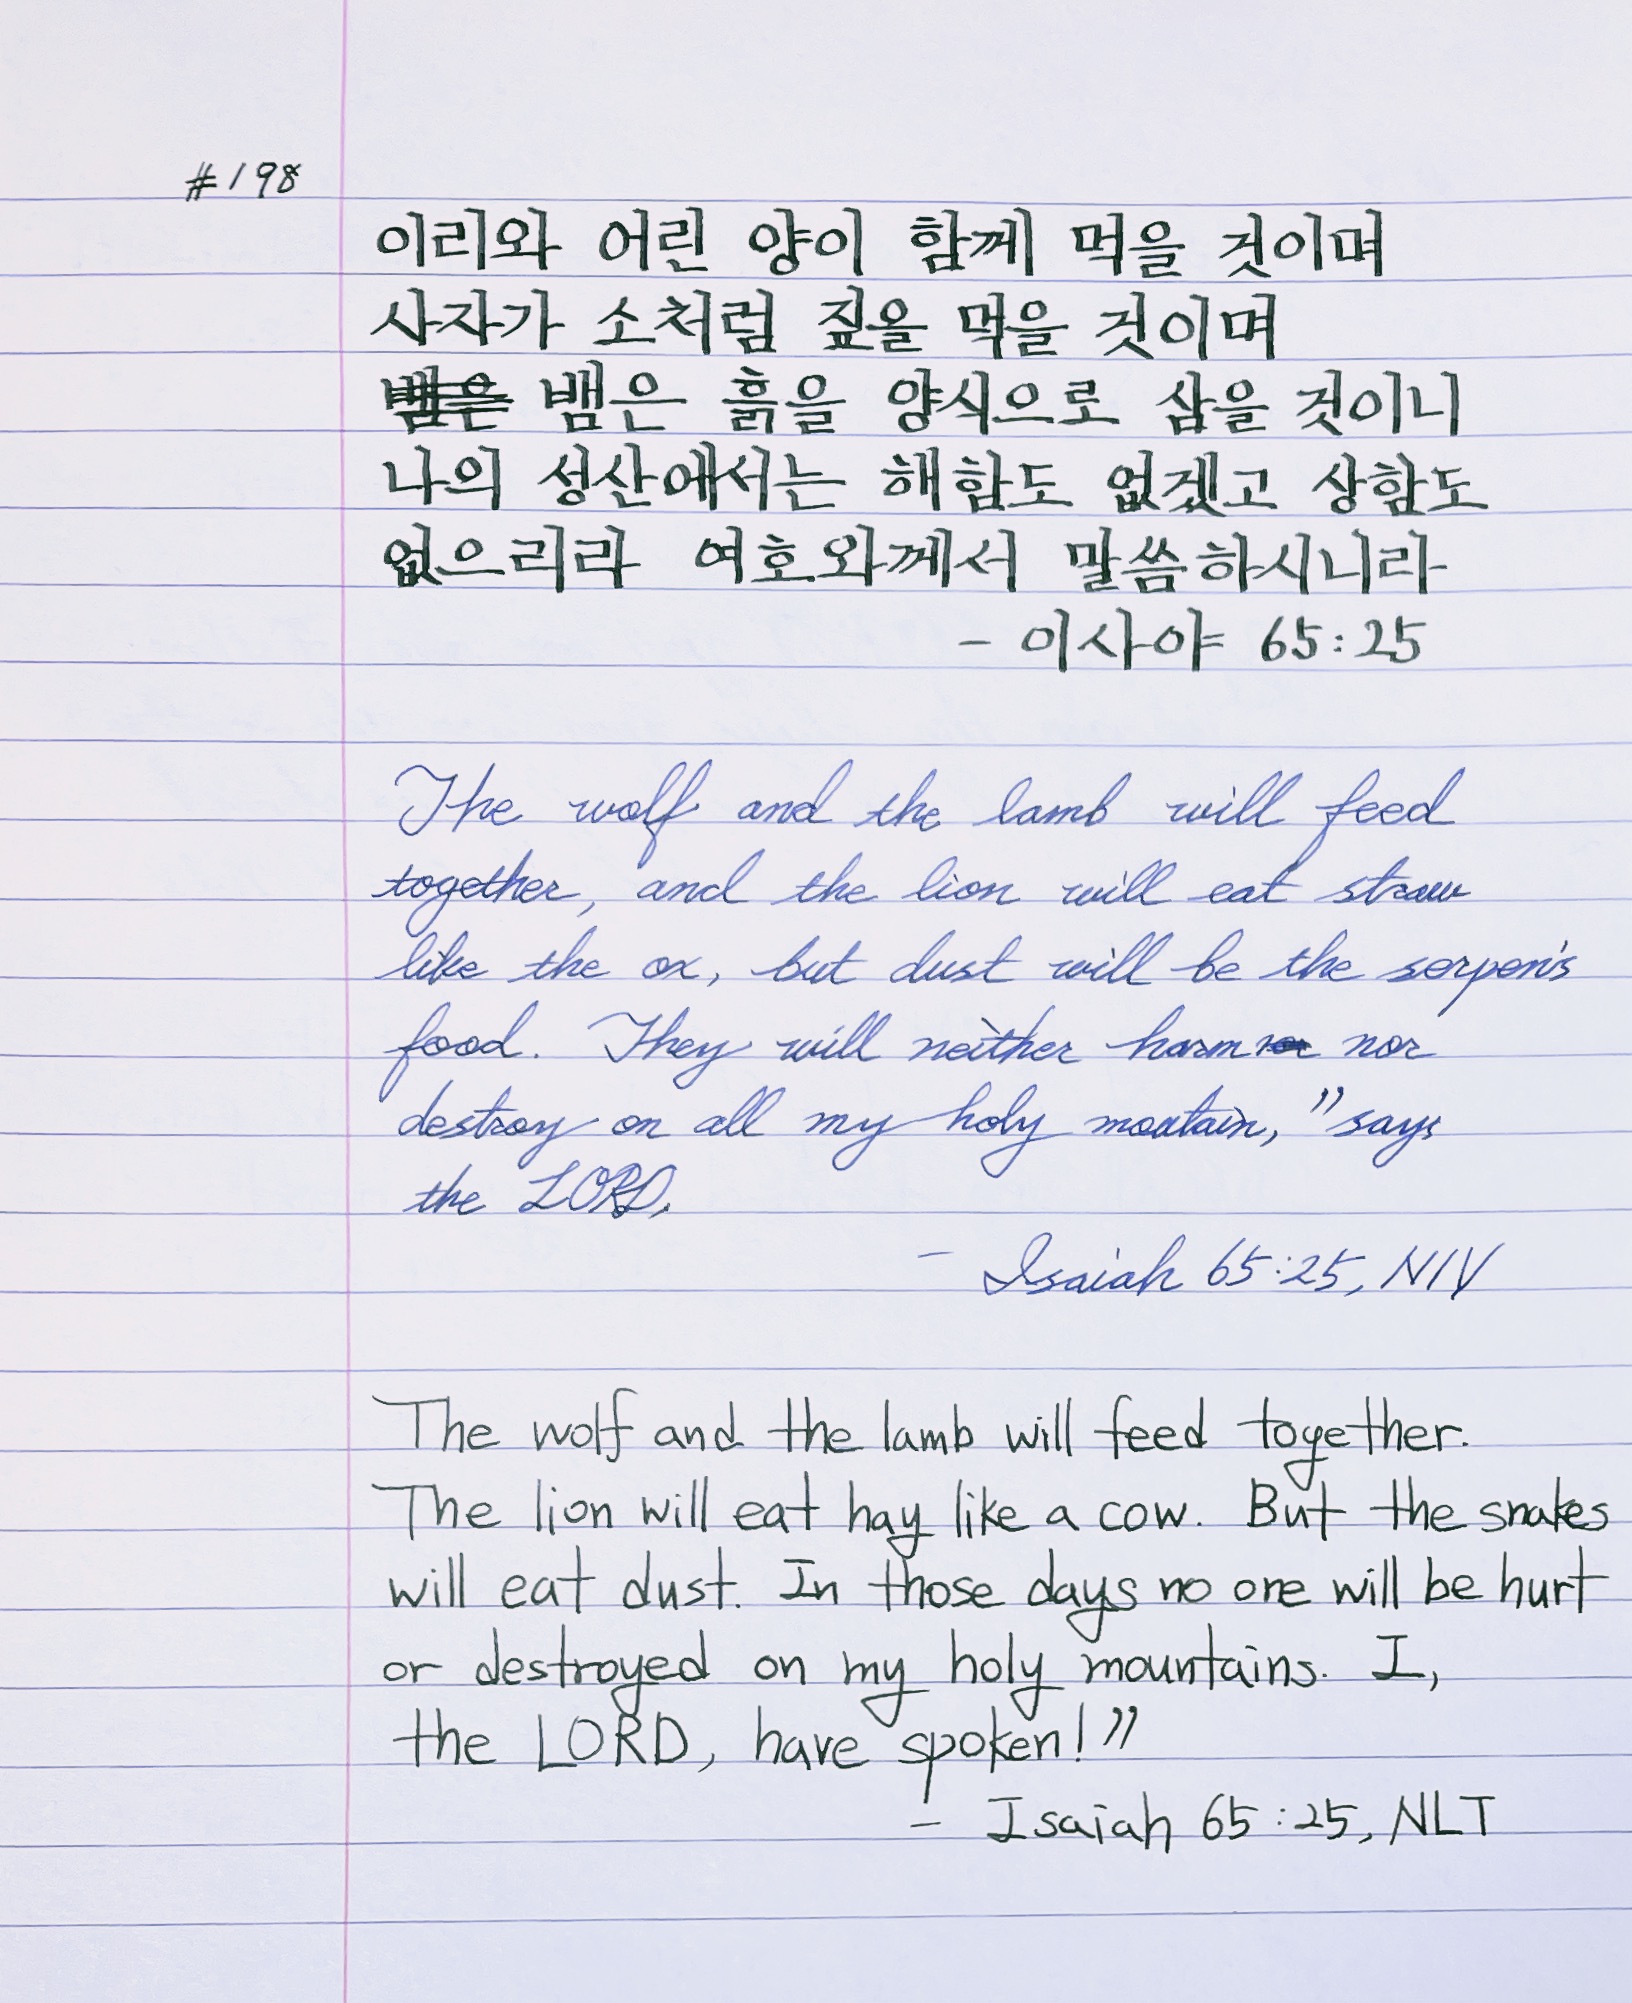 #198
이리와 어린 양이 함께 먹을 것이며
사자가 소처럼 짚을 먹을 것이며
뱀은 뱀은 흙을 양식으로 삼을 것이니
나의 성산에서는 해함도 없겠고 상함도
없으리라 여호와께서 말씀하시니라
- 이사야 65:25
The wolf and the lamb will feed
together, and the lion will eat straw
like the ox, but dust will be the serpen's
food. They will neither harm nor nor
destroy on all my holy moutain," says
the LORD.
- Isaiah 65:25, NIV
The wolf and the lamb will feed together.
The lion will eat hay like a cow. But the snakes
will eat dust. In those days no one will be hurt
or destroyed on my holy mountains. I,
the LORD, have spoken!"
- Isaiah 65:25, NLT